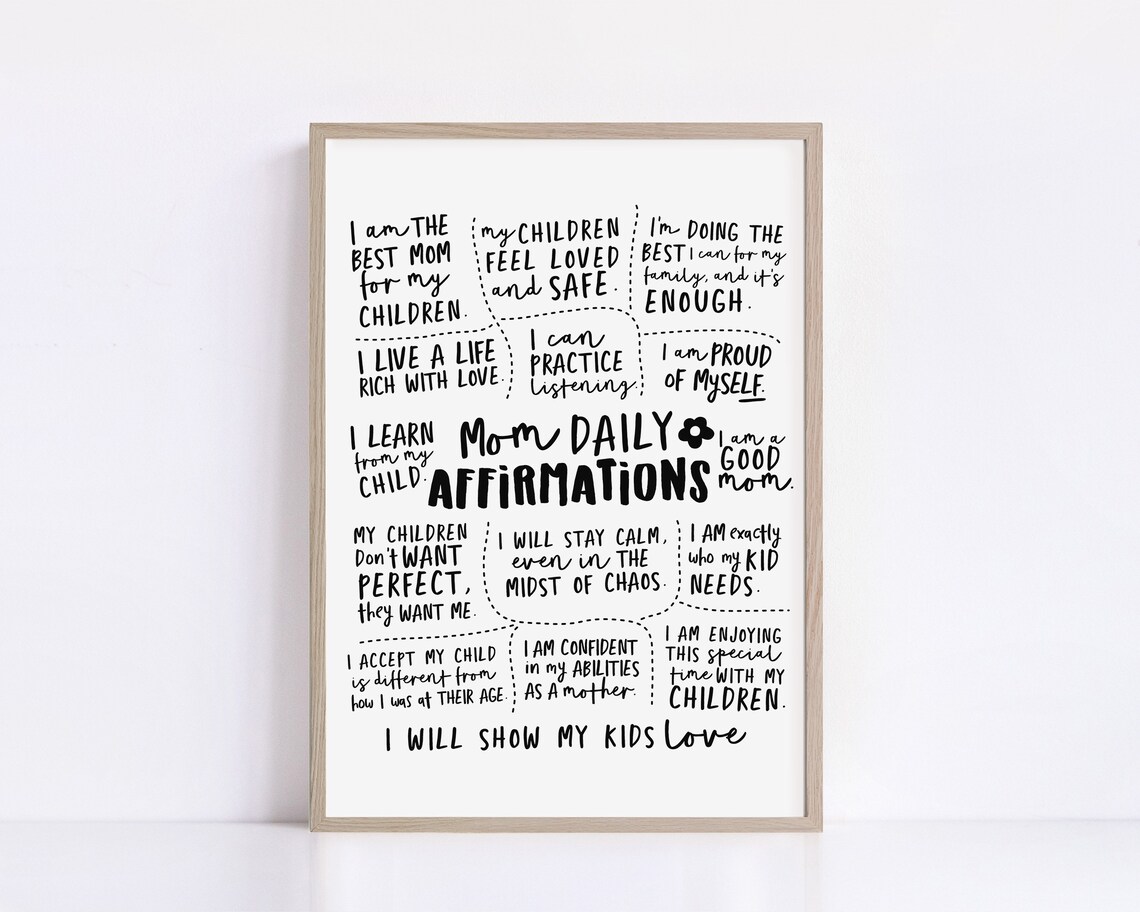 I am THE
BEST MOM
for my
CHILDREN.
my CHILDREN
FEEL LOVED
and SAFE.
I'm DOING THE
BEST I can for my
family, and it's
ENOUGH.
I LIVE A LIFE
RICH WITH LOVE.
I can
PRACTICE
listening.
I am PROUD
OF MySELF.
I LEARN
from my
CHILD.
Mom DAILY
AFFiRMATiONS
I am a
GOOD
mom.
MY CHILDREN
Don't WANT
PERFECT,
they WANT ME.
I WILL STAY CALM,
even in THE
MIDST OF CHAOS.
I AM exactly
who my KID
NEEDS.
I ACCEPT MY CHILD
is different from
how I was at THEIR AGE.
I AM CONFIDENT
in my ABILITIES
AS A mother.
I AM ENJOYING
THIS special
time WITH MY
CHILDREN.
I WILL SHOW MY KIDS love